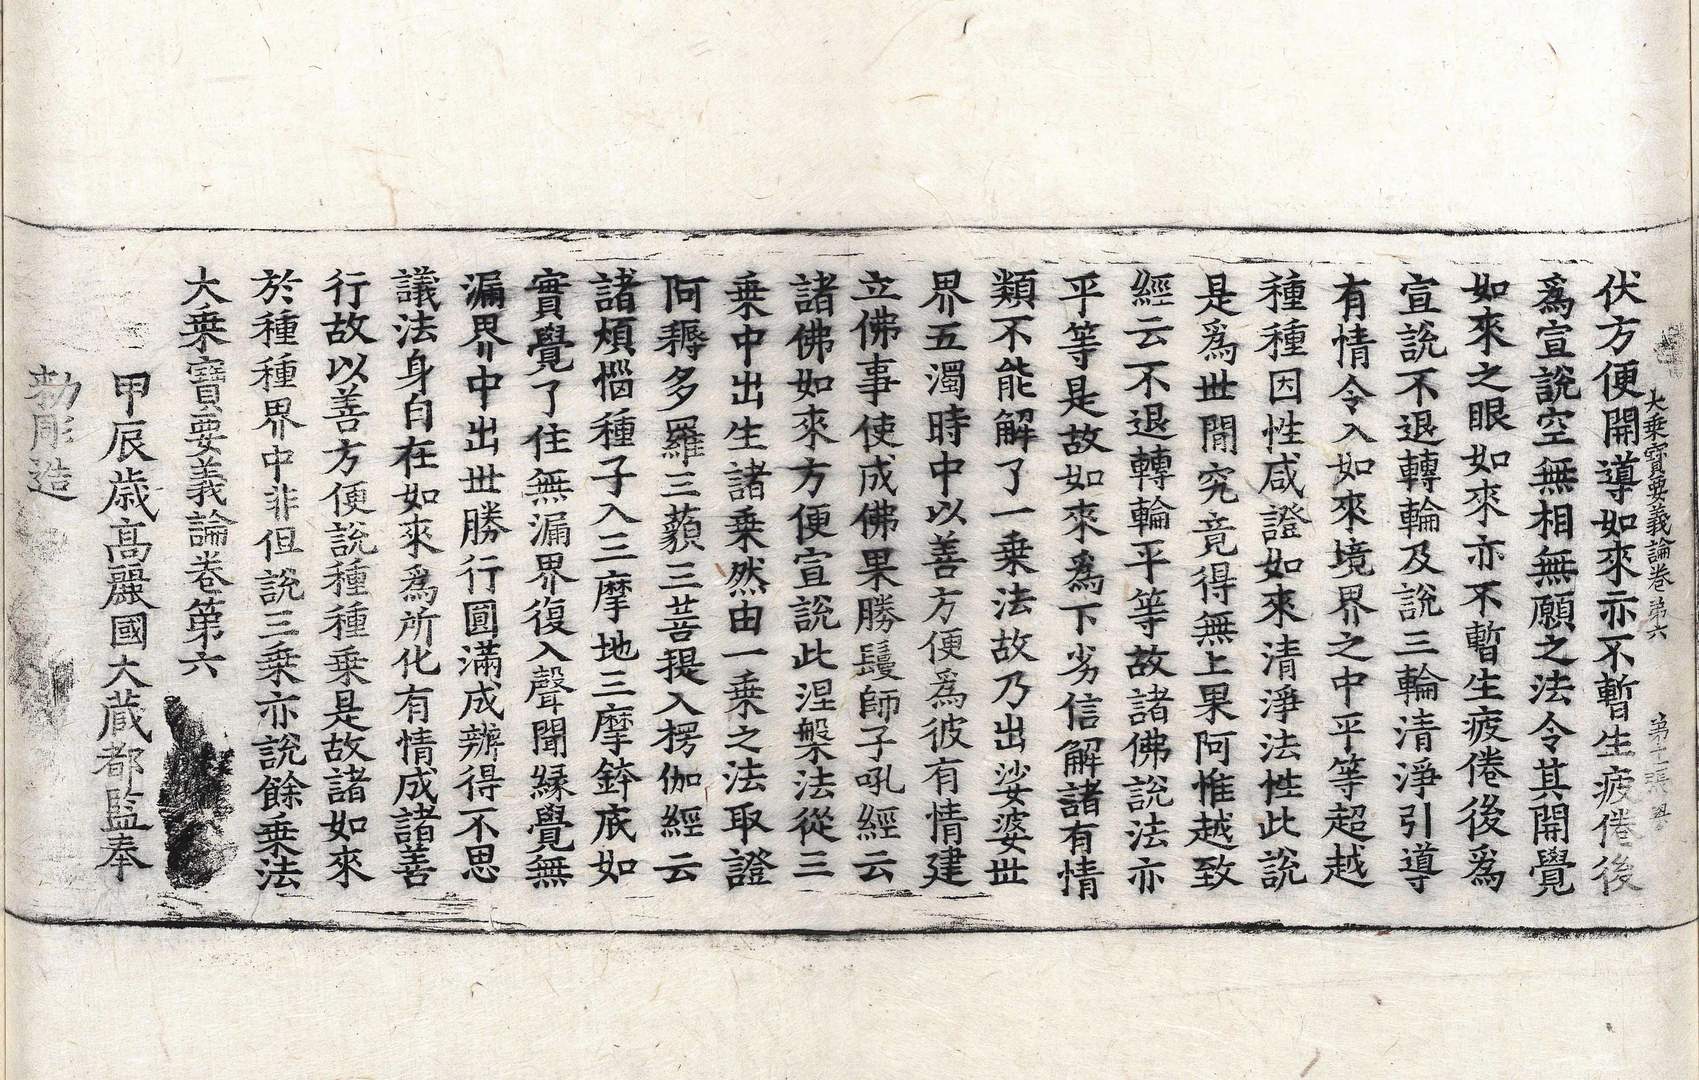 大乗寶要義論卷第六
伏方便開導如來亦不暫生疲倦後
爲宣說空無相無願之法令其開覺
如來之眼如來亦不暫生疲倦後爲
宣說不退轉輪及說三輪清淨引導
有情令入如來境界之中平等超越
種種因性咸證如來清淨法性此說
是爲世間究竟得無上果阿惟越致
經云不退轉輪平等故諸佛說法亦
平等是故如來爲下劣信解諸有情
類不能解了一乗法故乃出娑婆世
界五濁時中以善方便爲彼有情建
立佛事使成佛果勝鬘師子吼經云
諸佛如來方便宣說此涅槃法從三
乗中出生諸乗然由一乗之法取證
阿耨多羅三藐三菩提入楞伽經云
諸煩惱種子入三摩地三摩鉢底如
實覺了住無漏界復入聲聞緣覺無
漏界中出世勝行圓滿成辦得不思
議法身自在如來爲所化有情成諸善
行故以善方便說種種乗是故諸如來
於種種界中非但說三乗亦說餘乗法
大乗寶要義論卷第六
甲辰歲高麗國大藏都監奉
勅彫造